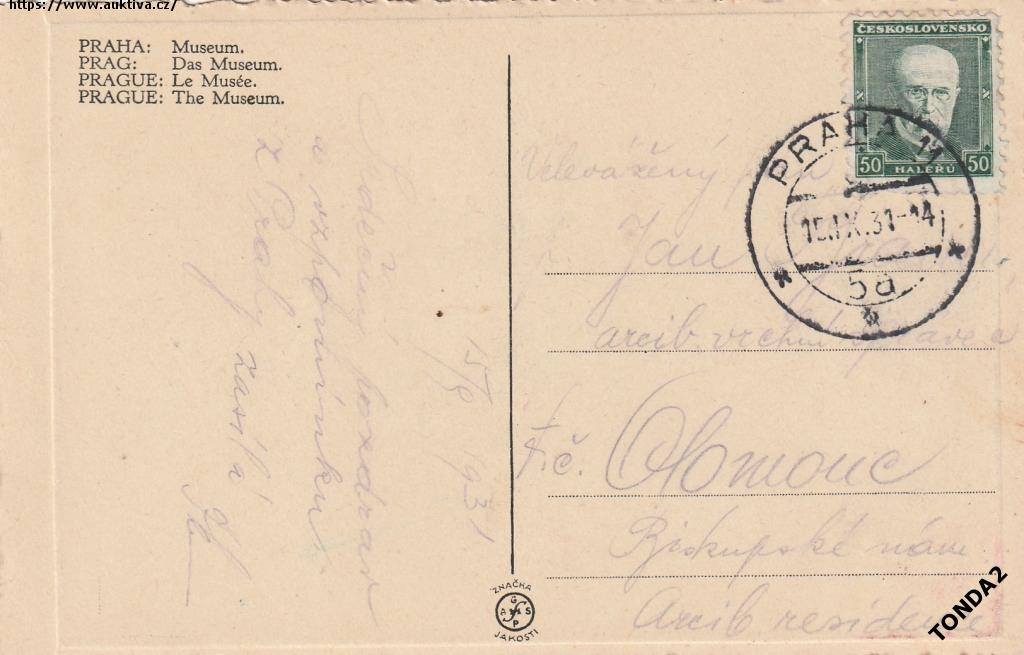 https://www.auktiva.cz/
PRAHA: Museum.
PRAG: Das Museum.
PRAGUE: Le Musée.
PRAGUE: The Museum.
Srdečný pozdrav
a vzpomínku
z Prahy zasílá
15/9 1931
ČESKOSLOVENSKO
50 HALÉŘŮ 50
PRAHA 11
15.IX.31-14
5a
Velevážený pan
Jan
arcib. vrchní
Olomouc
Biskupské nám
Arcib residence
ZNAČKA
GRAFS
JAKOSTI
TONDA2